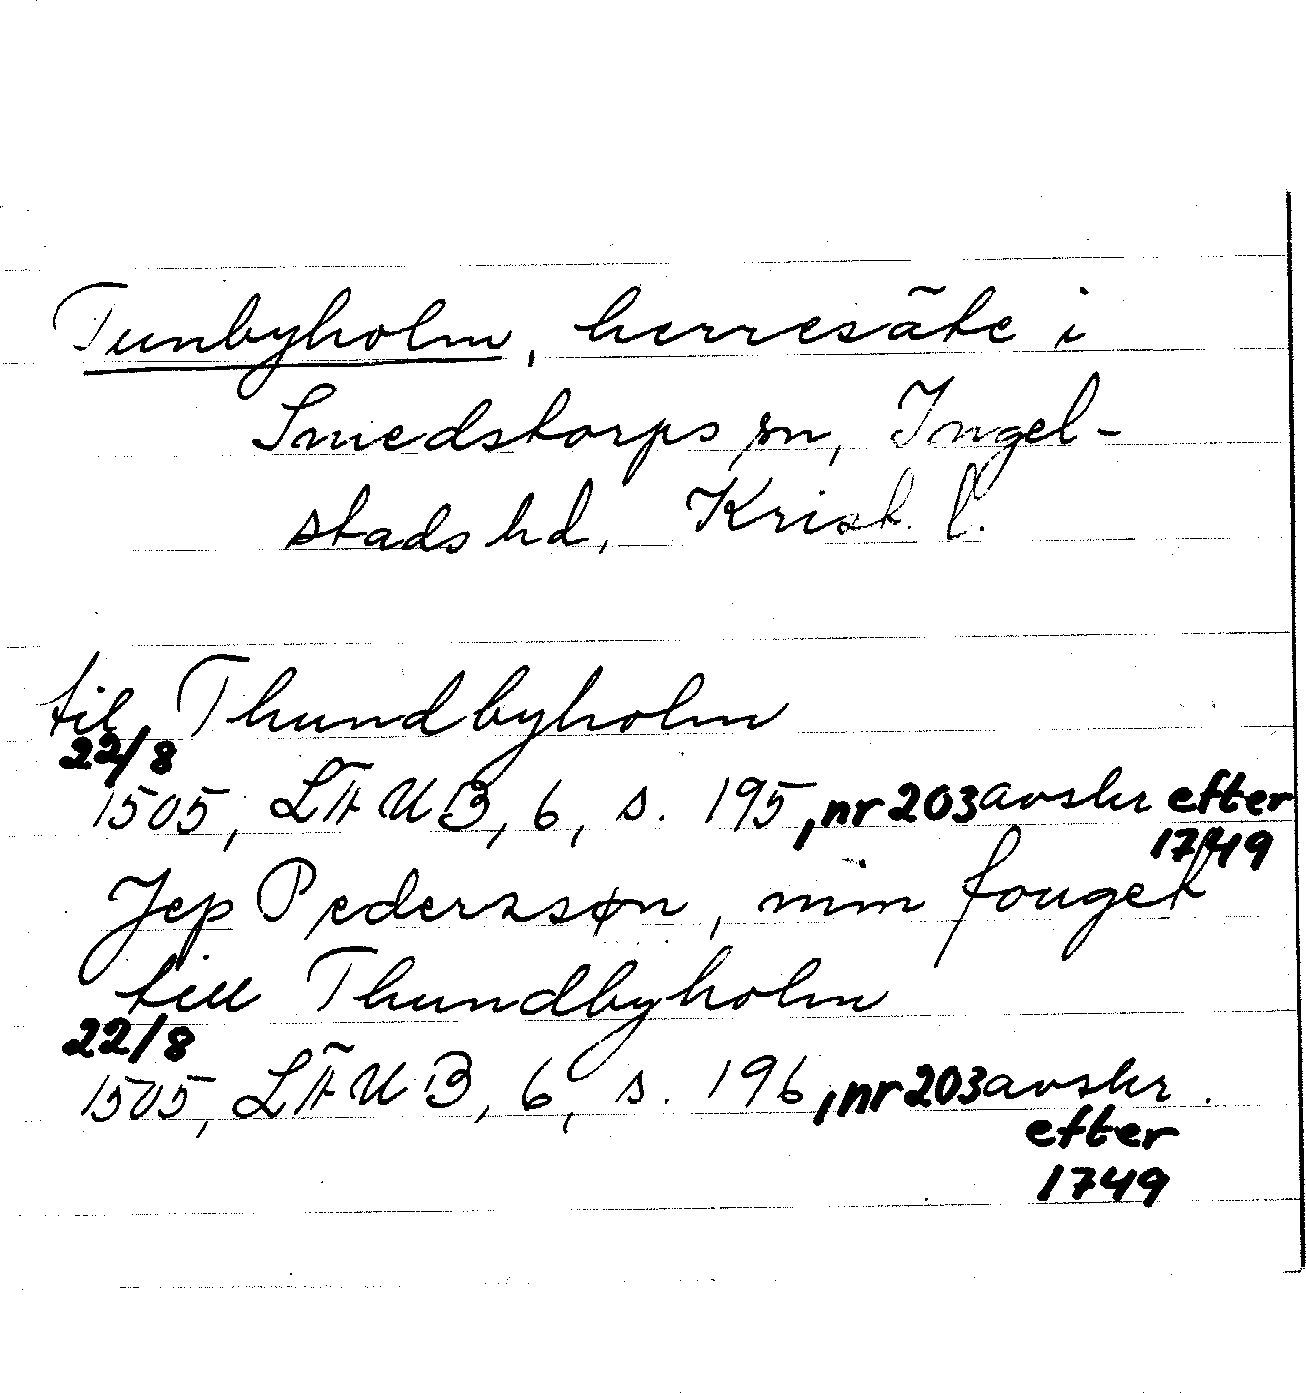 Tunbyholm, herresäte i
Smedstorps sn, Ingel-
stads hd, Krist. l.
til Thundbyholm
22/8
1505, LÄUB, 6, s. 195, nr 203 avskr efter
1749
Jep Pedersszøn, min fouget
till Thundbyholm
22/8
1505, LÄUB, 6, s. 196, nr 203 avskr.
efter
1749